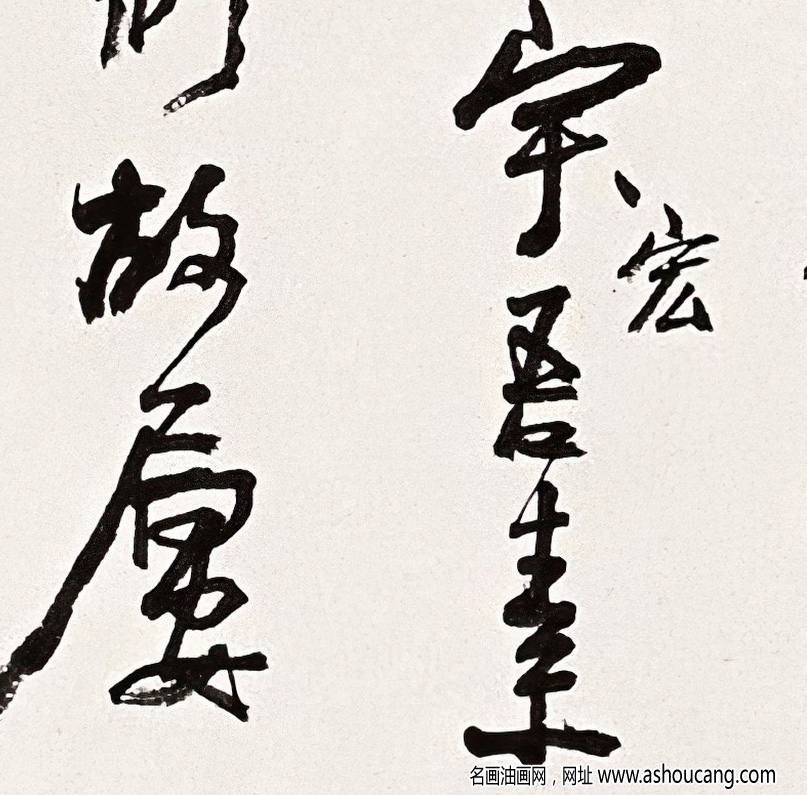 宇宏吾
故屢
名画油画网，网址 www.ashoucang.com